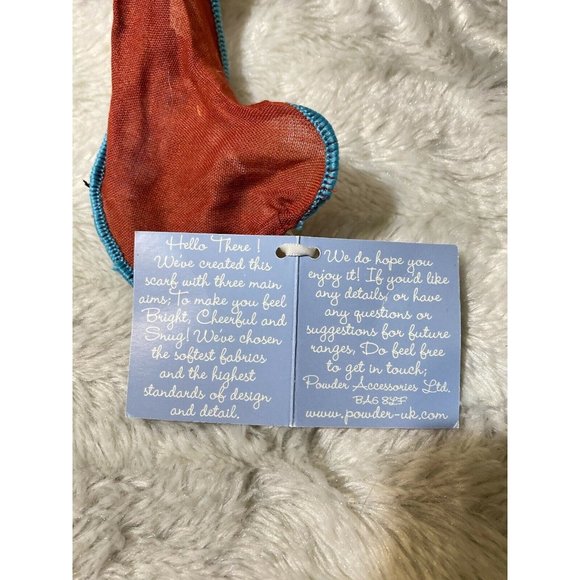 Hello There !
We've created this
scarf with three main
aims; To make you feel
Bright, Cheerful and
Snug! We've chosen
the softest fabrics
and the highest
standards of design
and detail.
We do hope you
enjoy it! If you'd like
any details, or have
any questions or
suggestions for future
ranges, Do feel free
to get in touch;
Powder Accessories Ltd.
BA6 8LF
www.powder-uk.com